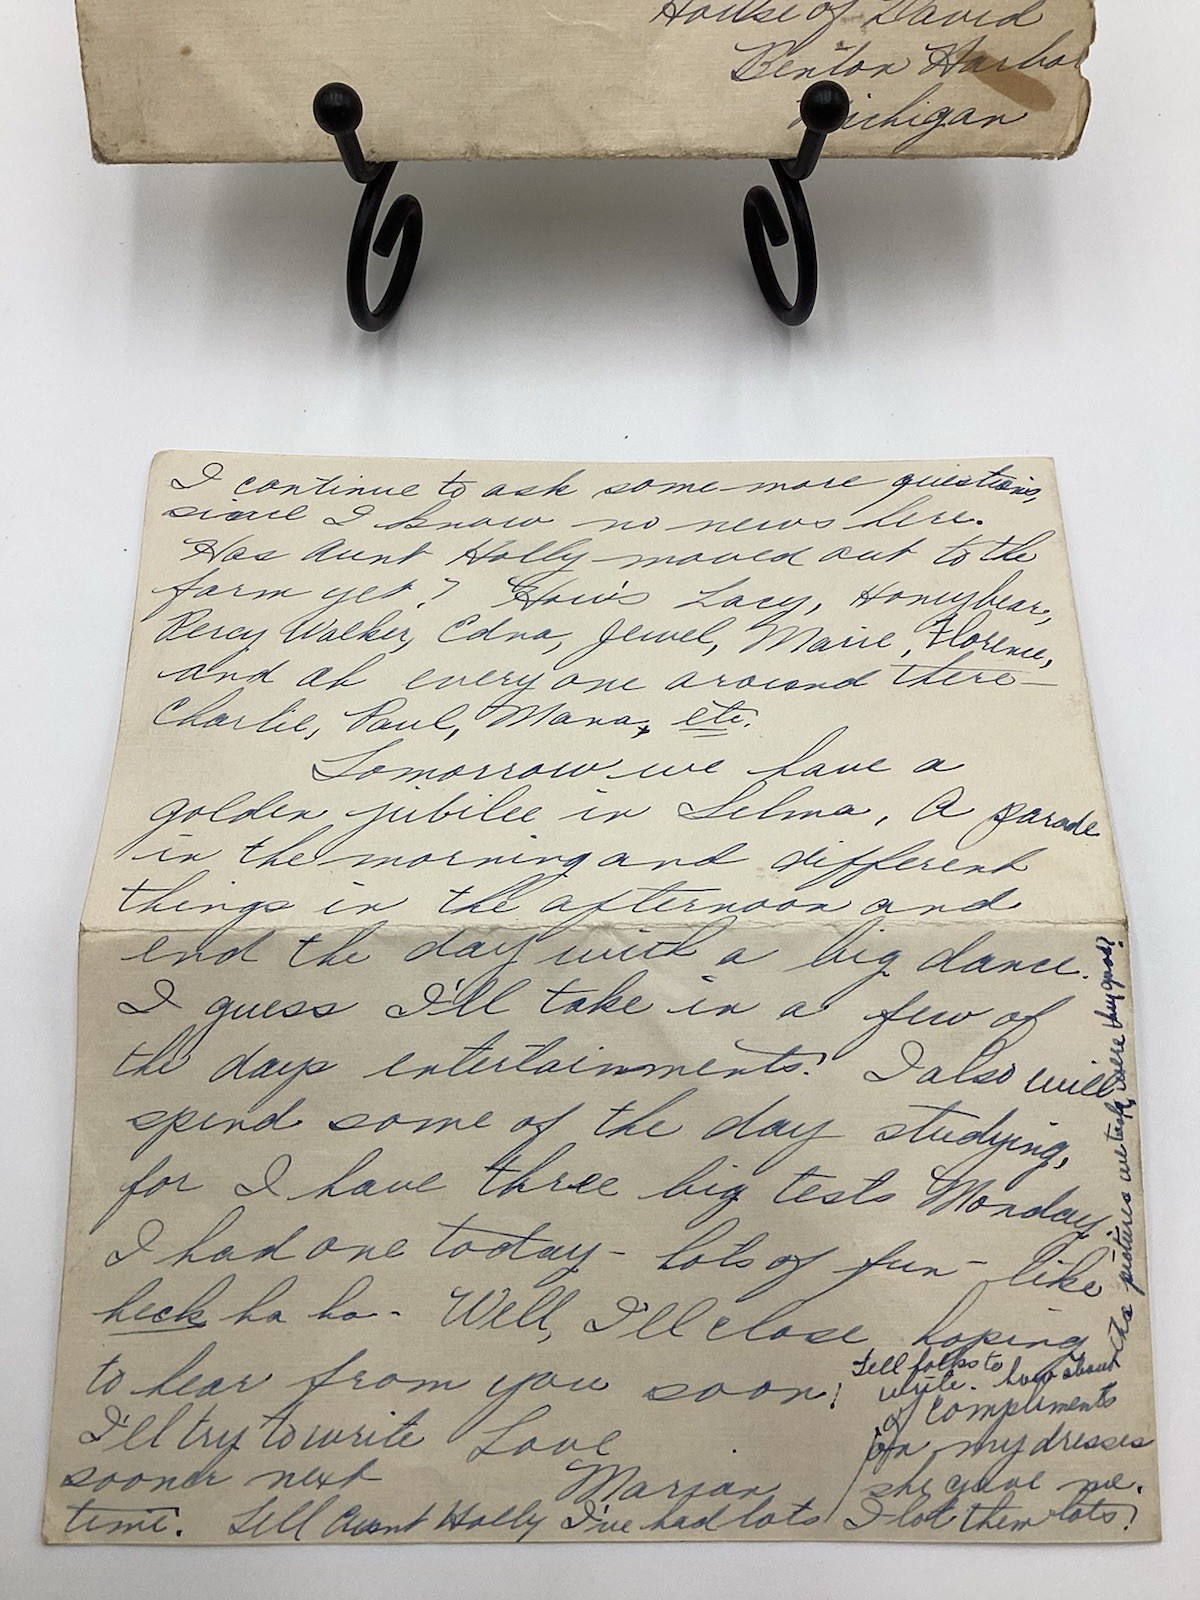 House of David
Benton Harbor
Michigan
I continue to ask some more questions,
since I know no news here.
Has Aunt Holly moved out to the
farm yet? How's Lacy, Honeybear,
Percy Walker, Edna, Jewel, Marie, Florence,
and oh everyone around there—
Charlie, Paul, Mana, etc.
Tomorrow we have a
golden jubilee in Selma, A parade
in the morning and different
things in the afternoon and
end the day with a big dance.
I guess I'll take in a few of
the days entertainments! I also will
spend some of the day studying,
for I have three big tests Monday.
I had one today - lots of fun - like
heck ha ha - Well, I'll close hoping
to hear from you soon!
I'll try to write
sooner next
time.
Love
Marian
Tell Aunt Holly I've had lots
of compliments
on my dresses
she gave me.
I lot them lots!
Tell folks to
write. how about
the pictures we took, were they good?